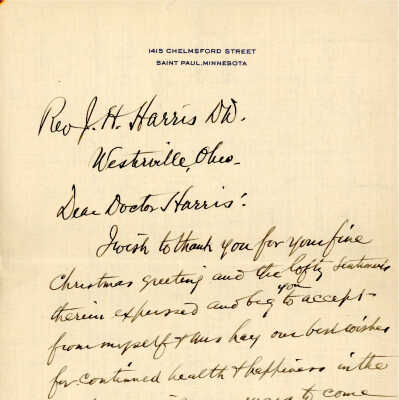 1415 CHELMSFORD STREET
SAINT PAUL, MINNESOTA
Rev J. H. Harris D.D.
Westerville, Ohio.
Dear Doctor Harris:
I wish to thank you for your fine
Christmas greeting and the lofty sentiments
therein expressed and beg you to accept
from myself & our best wishes
for continued health & happiness in the
to come